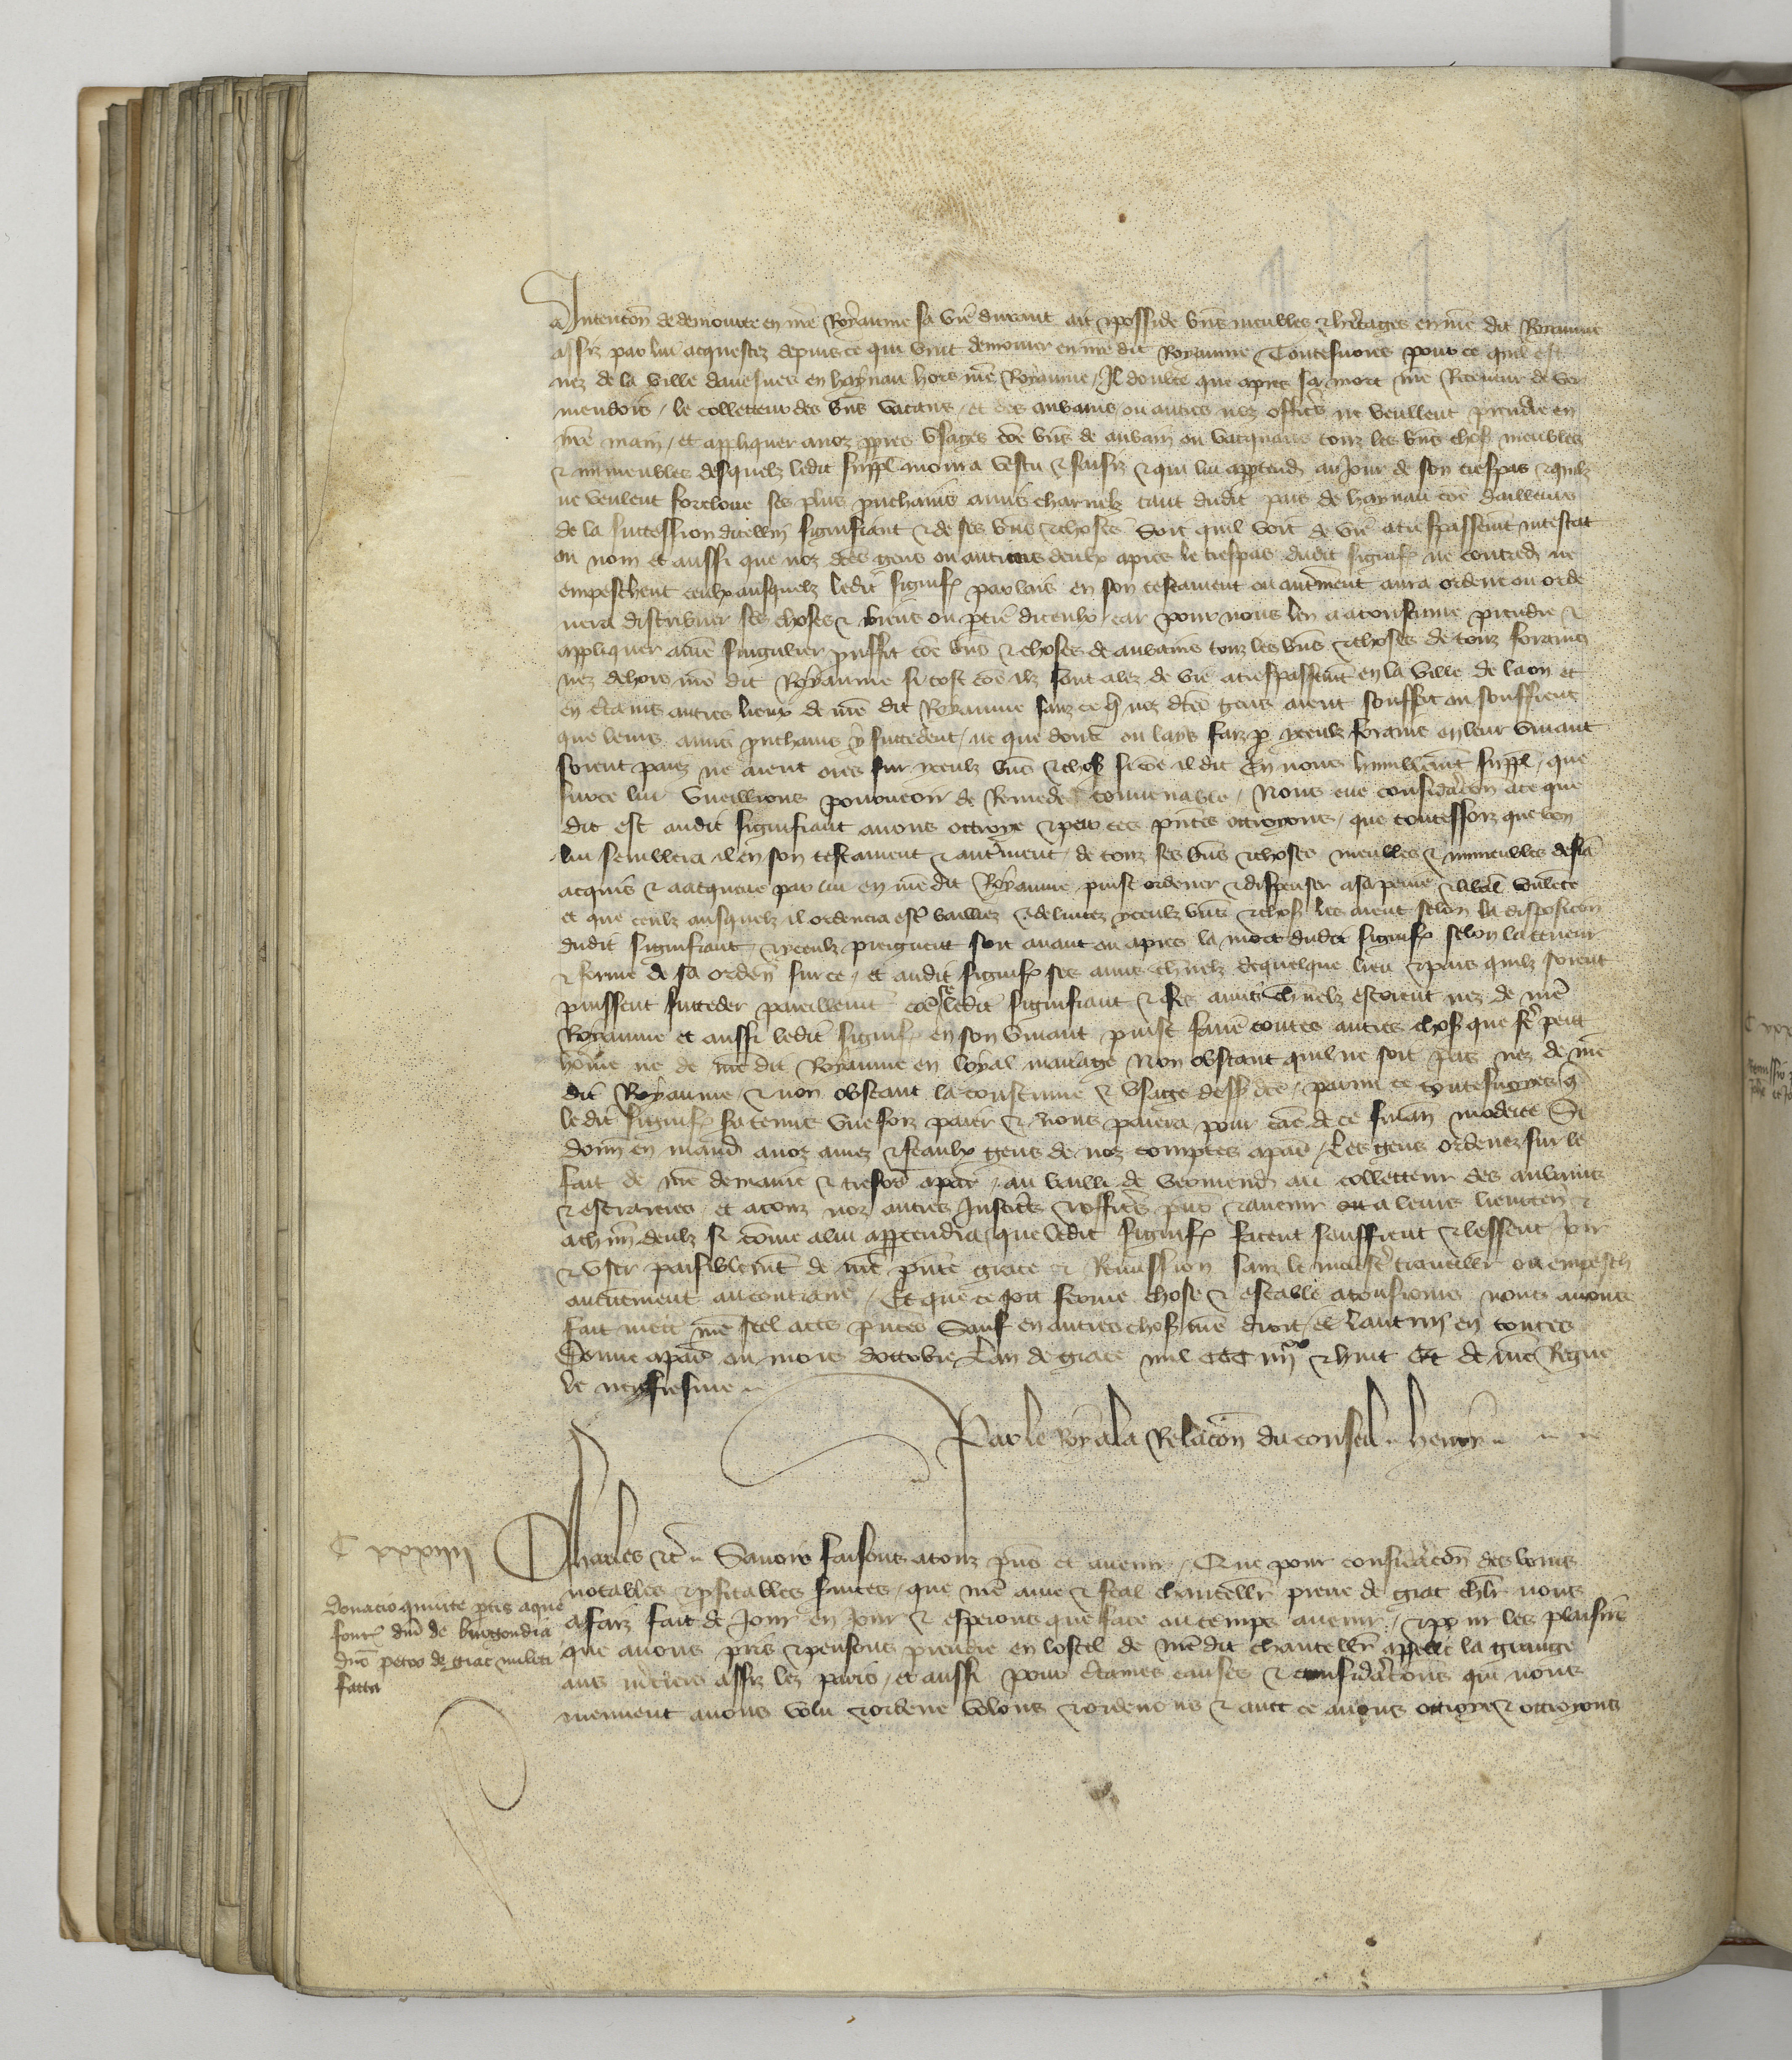 a Intencōn de demourer en nr̄e Royaume sa vie durant ait et posside bn̄s meubles et heritages en nr̄e dit Royaume
assiz par lui acquestez depuis ce qui vint demourer en nr̄e dit Royaume Toutesuoies pour ce quil est
nez de la ville dauesnes en haynau hors nr̄e Royaume / Il doubte que apres sa mort nr̄e Receueur de ver
mendois / le collecteur des bn̄s vacans / et des aubains ou autres noz offic̄s ne veullent prendre en
nr̄e main / et appliquer a noz ppres vsages cōe bn̄s de aubain ou vacquans touz les bn̄s chos̄ meubles
et immeubles desquelz ledit suppl̄ mourra vestu et saisiz et qui lui apptend̄ au Jour de son trespas et quilz
ne veulent forclorre ses plus prochains amis charnelz tant dudit pais de haynau cōe dailleurs
de la succession dicellui signifiant et de ses bn̄s et choses Soit quil voit de vie a trespassemt̄ intestat
ou non et aussi que noz dc̄es gens ou aucuns deulx apres le trespas dudit signif̄ ne contred̄ ne
empeschent ceulx ausquelz ledit signif̄ par lais en son testament ou autrement aura ordene ou orde
nera distribuer ses choses et biens ou partie diceulx car pour nous len a acoustume prendre et
appliquer a nr̄e singulier prouffit cōe bn̄s et choses de aubains touz les bn̄s et choses de touz forains
nez dehors nr̄e dit Royaume si tost cōe ilz sont alez de vie a trespassemt̄ en la ville de laon et
en ctains autres lieux de nr̄e dit Royaume sanz ce q̄ noz dc̄es gens aient souffert ou souffrent
que leurs amis prochains y succedent / ne que dons ou lays faiz p yceulx forains en leur viuant
soient paiez ne aient oies sur yceulx bn̄s et chos̄ si cōe il dit En nous humblemt̄ suppl̄ / que
sur ce lui vueillions pourueoir de Remede conuenable / Nous eue consideracōn a ce que
dit est audit signifiant auons ottroye et par ces pn̄tes ottroyons / que toutesfoiz que bon
lui semblera il en son testament et autrement / de touz ses bn̄s et choses meubles et immeubles desia
acquis et a acquerre par lui en nr̄e dit Royaume puist ordener et disposer a sa
et que ceulx ausquelz il ordenera estre bailliez et deliurez yceulx bn̄s et chos̄ les aient selon la disposicōn
dudit signifiant / et yceulx preignent soit auant ou apres la mort dudit signif̄ selon la teneur
et forme de sa orden̄ sur ce / et audit signif̄ ses amis charnelz de quelque lieu et pais quilz soient
puissent succeder pareillemt̄ cōe se ledit signifiant et ses amis charnelz estoient nez de nr̄e
Royaume et aussi ledit signif̄ en son viuant puist faire toutes autres chos̄ que fere peut
hōme ne de nr̄e dit Royaume en loyal mariage Non obstant quil ne soit pas nez de nr̄e
dit Royaume / et non obstant la coustume et vsage dess dc̄e / parmi ce toutesuoyes q̄
ledit signif̄ sa tenus vne foiz paier et nous paiera pour cāe de ce finan̄ moderee Si
donn̄ en mand̄ a noz amez et feaulx gens de noz comptes a par̄ / Les gens ordenez sur le
fait de nr̄e demaine et tresor a par̄ / au bailli de vermend̄ au collecteur des aubains
et estraieres / et a touz noz autres Justic̄s et offic̄s pn̄s et auenir ou a leurs lieuxten̄ et
a chūn deulx si cōme a lui appartendra / que ledit signif̄ facent seuffrent et lessent Joir
et vser paisiblemt̄ de nr̄e pn̄te grace et Remission sanz le molester trauailler ou empesch̄
aucunement au contraire / Et que ce soit ferme chose et estable a tousiours nous auons
fait mett̄ nr̄e seel a ces pn̄tes Sauf en autres chos̄ nr̄e droit / et lautruy en toutes
Donne a par̄ ou mois doctobre Lan de grace mil CCC iiijxx et huit Et de nr̄e Regne
le neufiesme
Par le Roy a la Relacōn du conseil .. henry ..
C xxxiiij
Donacio quinte ptis aque
font̄ dn̄i de burgondia
dn̄o petro de giac militi
facta
Charles etc̄ .. Sauoir faisons a touz pn̄s et auenir / Que pour consideracōn des bons
notables et pfitables seruices / que nr̄e ame et feal chancellr̄ pierre de giac chlr̄ nous
a faiz fait de Jour en Jour et esperons que face ou temps auenir / et pour les plaisirs
que auons pris et pensons prendre en lostel de nr̄e dit chancellr̄ appelle la grange
aus m̄ciers assiz lez paris / et aussi pour ctaines causes et consideracōns qui nous
meuuent auons volu et ordene volons et ordenons et auec ce auons ottroye et ottroyons